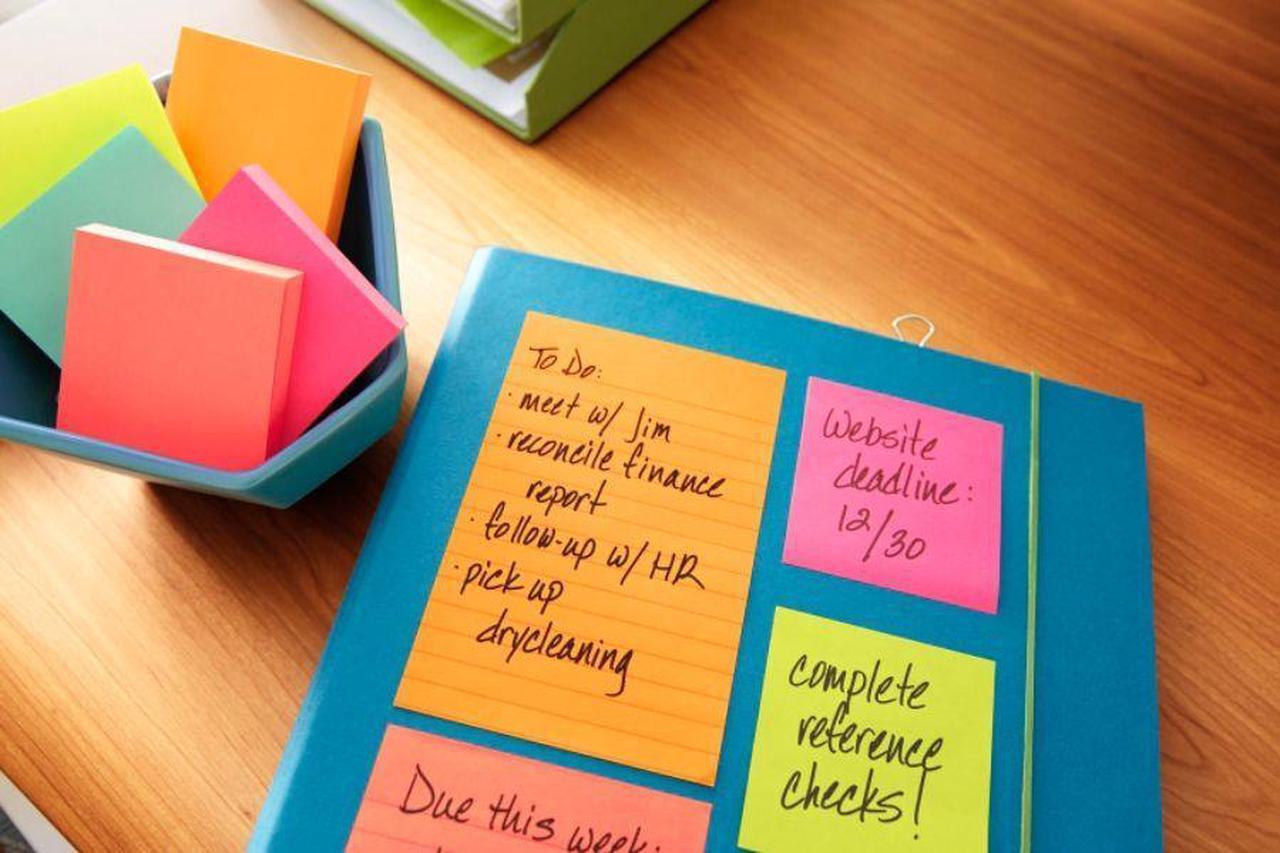 To Do:
· meet w/ Jim
· reconcile finance
report
· follow-up w/ HR
· pick up
drycleaning
Website
deadline:
12/30
complete
reference
checks!
Due this week: